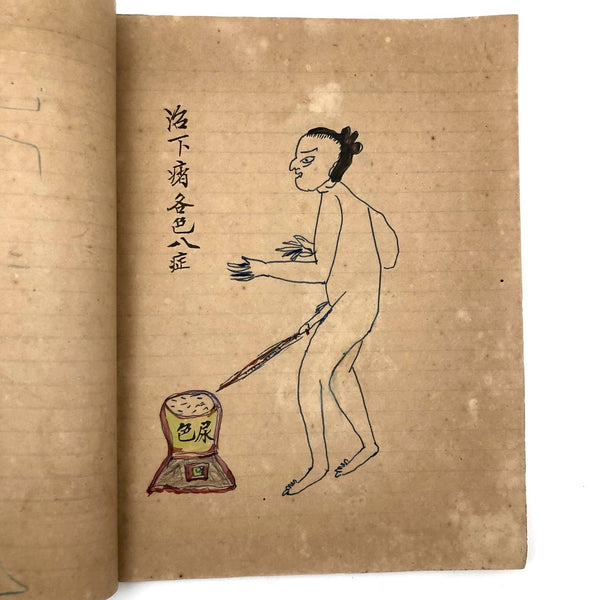 治下痟各色八症
尿色